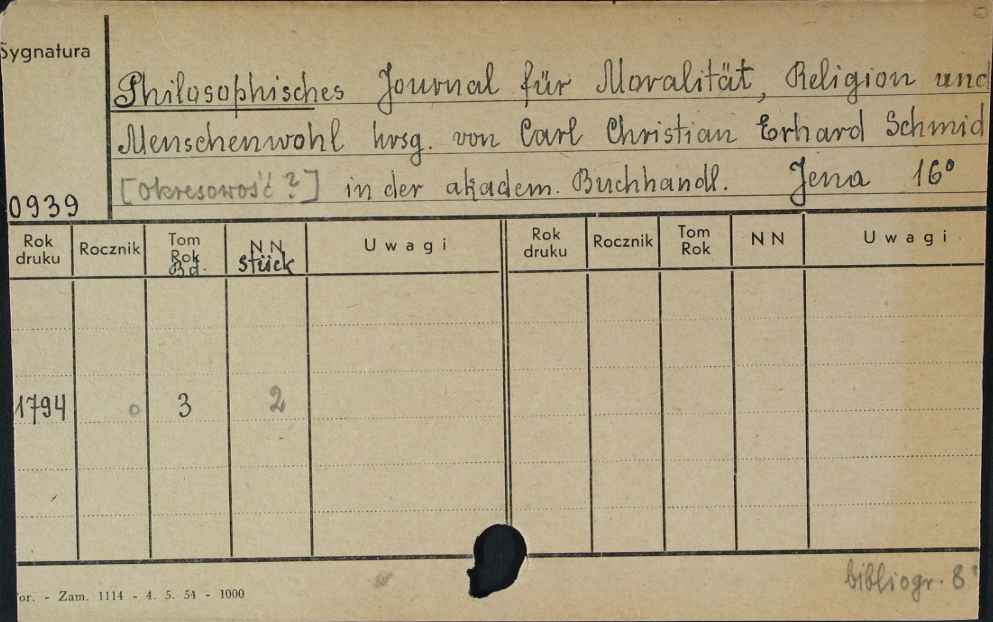 Sygnatura
Philosophisches Journal für Moralität, Religion und
Menschenwohl hrsg. von Carl Christian Erhard Schmid
[okresowość ?] in der akadem. Buchhandl. Jena 16°
0939
Rok druku Rocznik Tom Rok Bd. NN Stück Uwagi Rok druku Rocznik Tom Rok NN Uwagi
1794 0 3 2
bibliogr. 8°
or. - Zam. 1114 - 4. 5. 54 - 1000